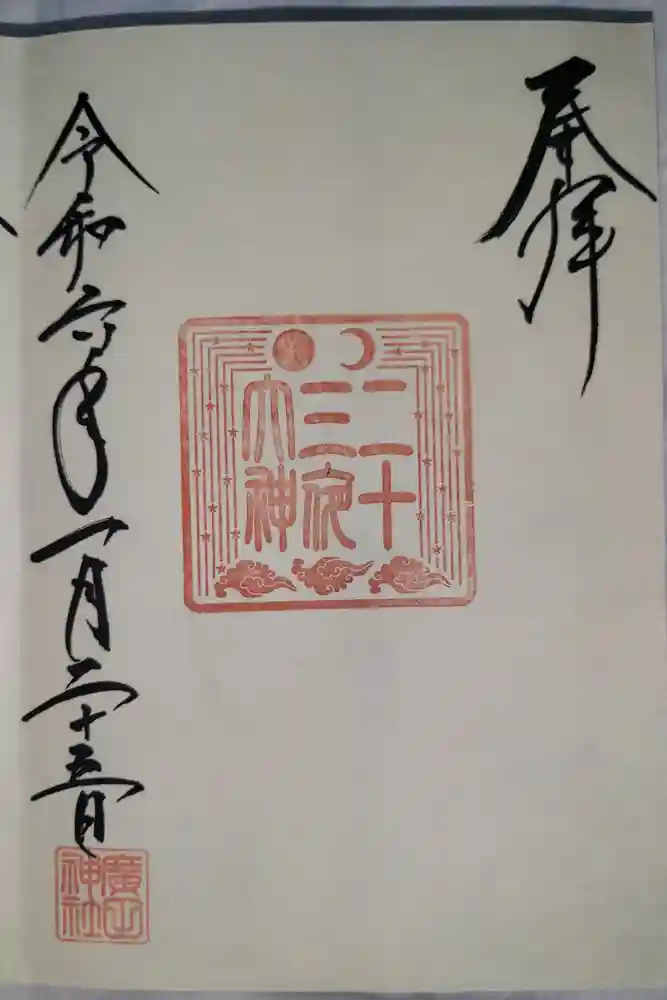 奉拝
二十
三夜
大神
令和六年一月二十三日
廣田
神社